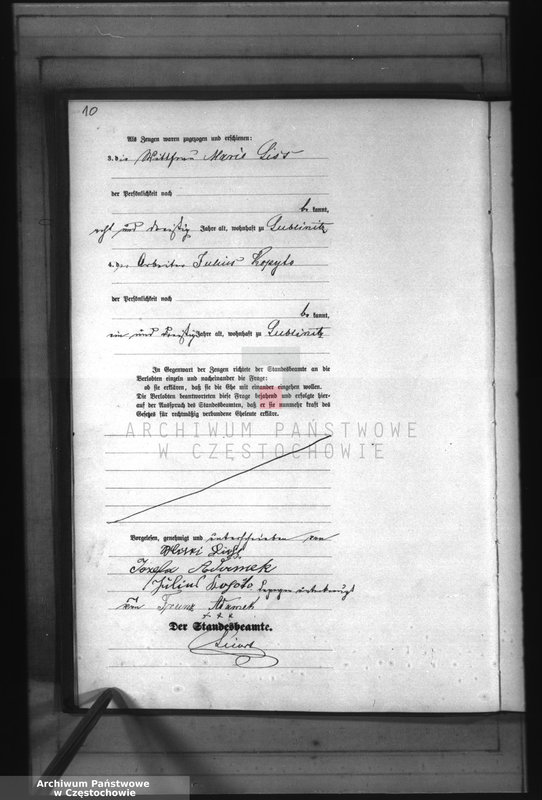 10
Als Zeugen waren zugezogen und erschienen:
3. die Wittfrau Marie Liss
der Persönlichkeit nach
be kannt,
acht und dreißig Jahre alt, wohnhaft zu Lublinitz
4. der Arbeiter Julius Kopyto
der Persönlichkeit nach
be kannt,
ein und dreißig Jahre alt, wohnhaft zu Lublinitz
In Gegenwart der Zeugen richtete der Standesbeamte an die
Verlobten einzeln und nacheinander die Frage:
ob sie erklären, daß sie die Ehe mit einander eingehen wollen.
Die Verlobten beantworteten diese Frage bejahend und erfolgte hier-
auf der Ausspruch des Standesbeamten, daß er sie nunmehr kraft des
Gesetzes für rechtmäßig verbundene Eheleute erkläre.
ARCHIWUM PAŃSTWOWE
W CZĘSTOCHOWIE
Vorgelesen, genehmigt und unterschrieben von
Josefa Adamek
Julius
von Franz Adamek
+ + +
Der Standesbeamte.
Archiwum Państwowe
w Częstochowie